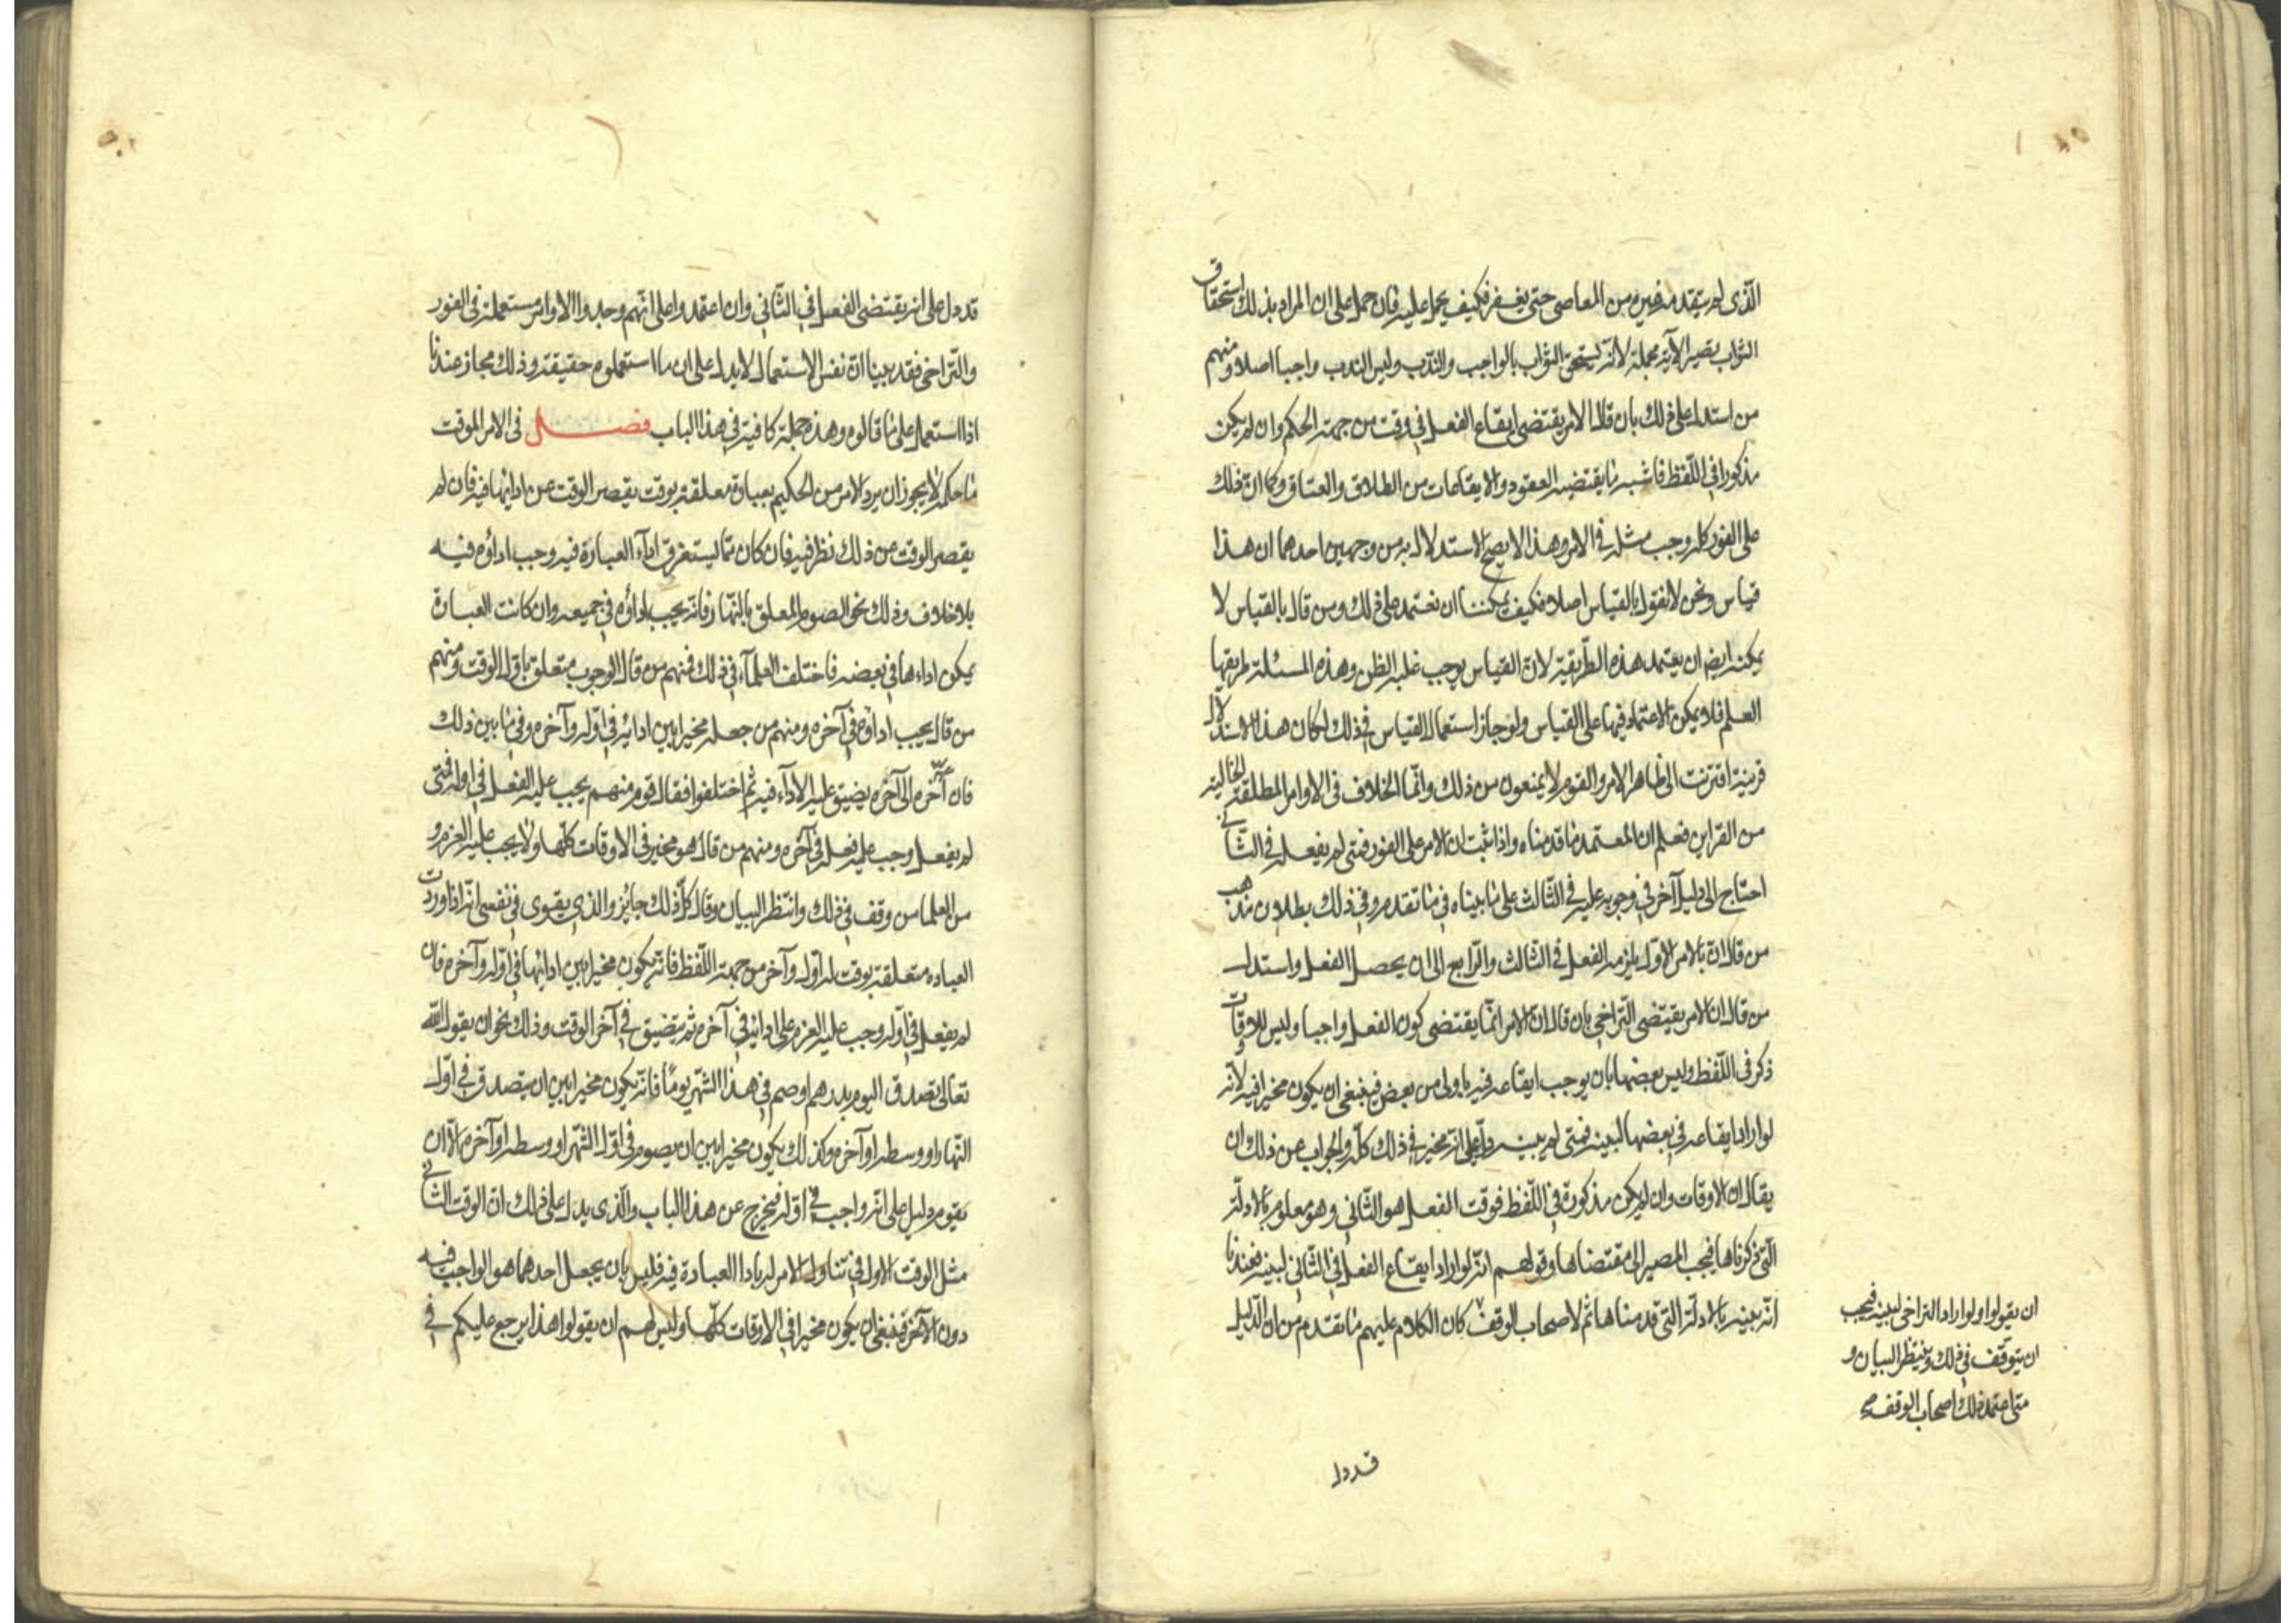 الّذى لم يتقدم غيره من المعاصى حتى يغفر فكيف يحمل عليه فان حمل على ان المراد بذلك استحقاق
الثواب يصير الآية مجملة لانّه يستحق الثواب بالواجب والنّدب وليس الندب واجبا اصلا ومنهم
من استدل على ذلك بان قال الامر يقتضى ايقاع الفعل في وقت من جهة الحكم وان لم يكن
مذكورا في اللّفظ فاشبه ما يقتضيه العقود والايقاعات من الطلاق والعتاق وكما انّ ذلك
على الفور كله وجب مثله في الامر وهذا لا يصح الاستدلال به من وجهين احدهما ان هذا
قياس ونحن لا نقول بالقياس اصلا فكيف يمكننا ان نعتمد على ذلك ومن قال بالقياس لا
يمكنه ايضا ان يعتمد هذه الطّريقة لانّ القياس يوجب غلبة الظن وهذه المسئلة طريقها
العلم فلا يمكن الاعتماد فيها على القياس ولو جاز استعمال القياس في ذلك لكان هذا الاستدلال
قرينة اقترنت الى ظاهر الامر والقوم لا يمنعون من ذلك وانّما الخلاف في الاوامر المطلقة الخالية
من القراين فعلم ان المعتمد ما قدمناه واذا ثبت ان الامر على الفور فمتى لم يفعله في الثّاني
احتاج الى دليل آخر في وجوبه عليه في الثّالث على ما بيناه في ما تقدم وفي ذلك بطلان مذهب
من قال انّ بالامر الاوّل يلزمه الفعل في الثّالث والرّابع الى ان يحصل الفعل واستدل
من قال ان الامر يقتضى التّراخى بان قال انّ الامر انّما يقتضى كون الفعل واجبا وليس للاوقات
ذكر في اللّفظ وليس بعضها بان يوجب ايقاعه فيه باولى من بعض فينبغى ان يكون مخيرا فيه لانّه
لو اراد ايقاعه في بعضها لبينه فمتى لم يبينه دلّ على انّه مخير في ذلك كلّه والجواب عن ذلك ان
يقال ان الاوقات وان لم يكن مذكورة في اللّفظ فوقت الفعل هو الثّاني وهو معلوم بالادلّة
الّتي ذكرناها فيجب المصير الى مقتضاها وقولهم انّه لو اراد ايقاع الفعل في الثّاني لبينه فعندنا
انّه بينه بالادلّة التى قدمناها ثم لاصحاب الوقف كان الكلام عليهم ما تقدم من ان الدّليل
ان يقولوا ولو اراد التراخى لبينه فيجب
ان يتوقف في ذلك وينتظر البيان و
متى اعتمد ذلك اصحاب الوقف
قد دل
قد دل على انه يقتضى الفعل في الثّاني وان اعتمدوا على انّهم وجدوا الاوامر مستعملة في الفور
والتّراخى فقد بينا انّ نفس الاستعمال لا يدل على ان ما استعملوه حقيقة وذلك مجاز عندنا
اذا استعمل على ما قالوه وهذه جملة كافية في هذا الباب فصل في الامر الموقت
ما حكمه لا يجوز ان يرد الامر من الحكيم بعبادة معلقة بوقت يقصر الوقت عن ادائها فيه فان لم
يقصر الوقت عن ذلك نظر فيه فان كان ممّا يستغرق اداء العبادة فيه وجب اداؤه فيه
بلا خلاف وذلك نحو الصوم المعلق بالنّهار فانّه يجب اداؤه في جميعه وان كانت العبادة
يمكن اداءها في بعضه فاختلف العلماء في ذلك فمنهم من قال الوجوب متعلق باوّل الوقت ومنهم
من قال يجب اداؤه في آخره ومنهم من جعله مخيرا بين ادائه في اوّله وآخره وفي ما بين ذلك
فان اخّره الى آخره يضيق عليه الاداء فيه ثم اختلفوا فقال قوم منهم يجب عليه الفعل في اوله فمتى
لم يفعل وجب عليه فعله في آخره ومنهم من قال هو مخير في الاوقات كلّها ولا يجب عليه العزم و
من العلما من وقف في ذلك وانتظر البيان وقال كلّ ذلك جايز والذى يقوى في نفسى انّه اذا وردت
العباده متعلقة بوقت له اوّل وآخر من جهة اللّفظ فانّه يكون مخيرا بين ادائها في اوّله وآخره فان
لم يفعل في اوّله وجب عليه العزم على ادائه في آخره ثم يتضيق في آخر الوقت وذلك نحو ان يقول اللّه
تعالى تصدق اليوم بدرهم او صم في هذا الشّهر يوماً فانّه يكون مخيرا بين ان يتصدق في اوّل
النّهار او وسطه او آخره وكذلك يكون مخيرا بين ان يصوم في اوّل الشّهر او وسطه او آخره الّا ان
يقوم دليل على انّه واجب في اوّله فيخرج عن هذا الباب والّذى يدل على ذلك انّ الوقت الثّاني
مثل الوقت الاول في تناول الامر له باداء العبادة فيه فليس بان يجعل احدهما هو الواجب فيه
دون الآخر فينبغى ان يكون مخيرا في الاوقات كلّها وليس لهم ان يقولوا هذا يرجع عليكم في